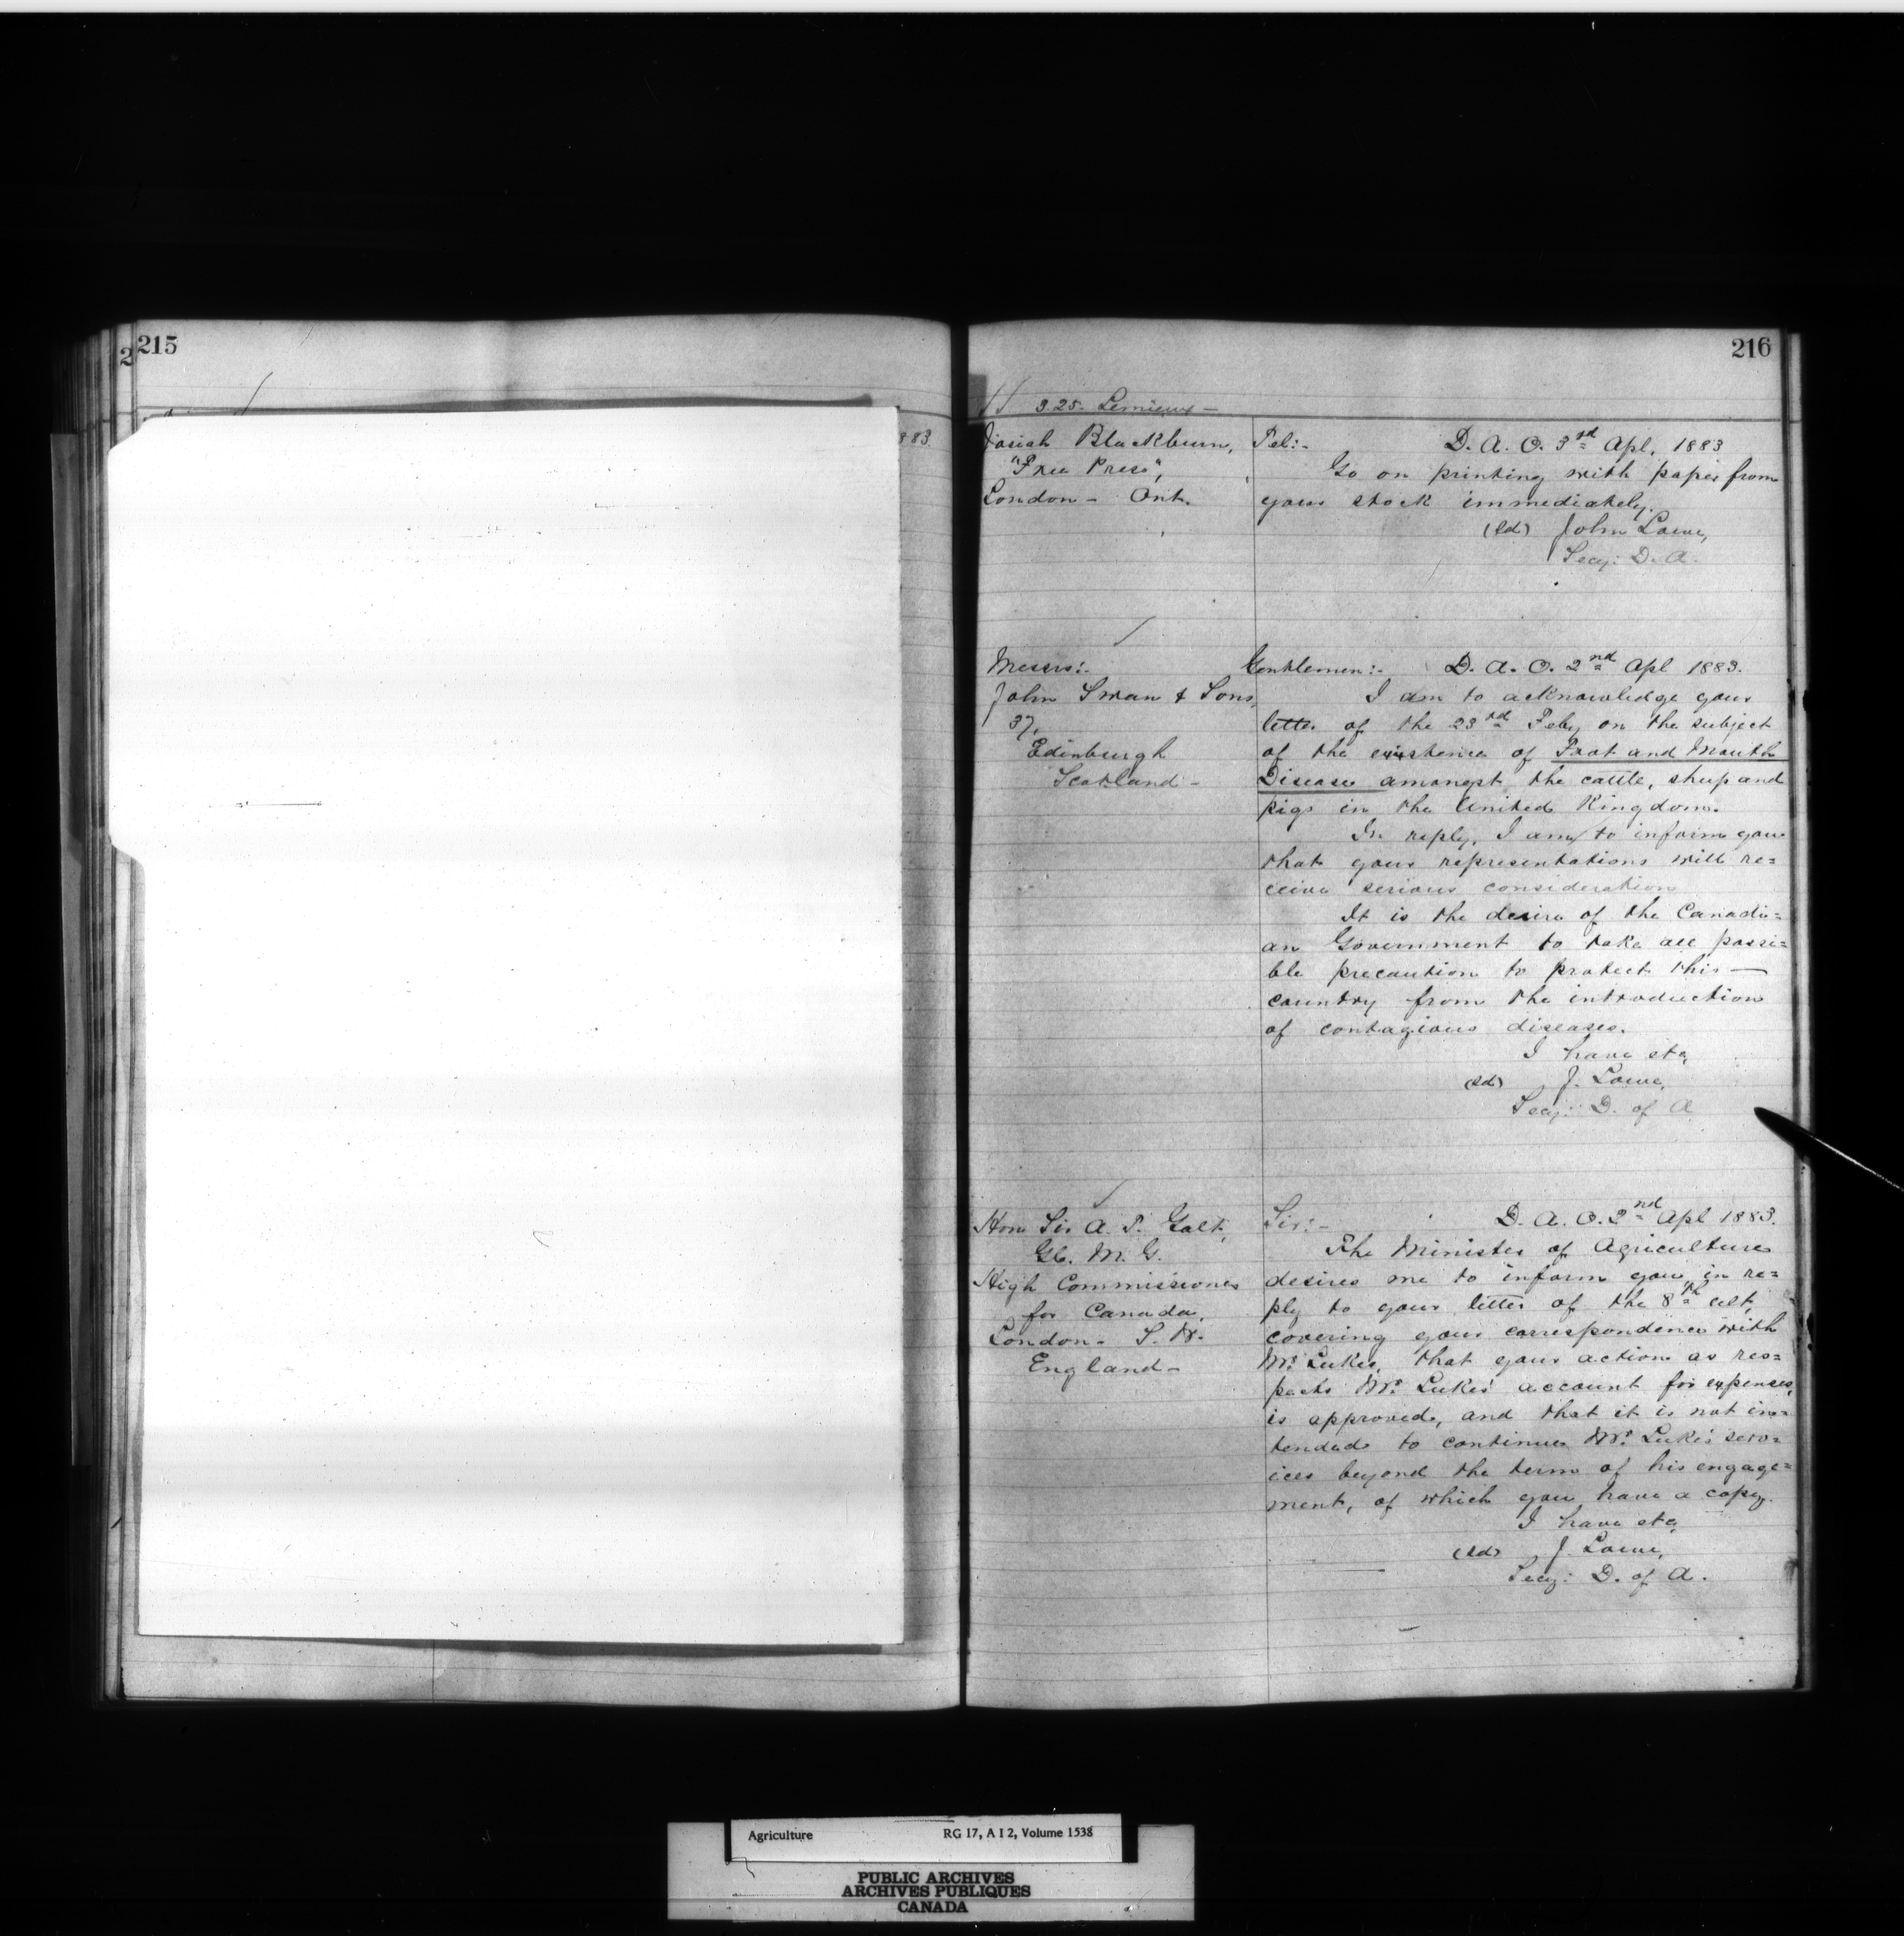 215
216
3.25. Lemieux —
Josiah Blackburn,
"Free Press",
London - Ont.
Tel:- D. A. O. 3rd Apl, 1883
Go on printing with paper from
your stock immediately.
(Sd) John Lowe,
Secy: D. A.
Messrs:-
John Swan & Sons,
37,
Edinburgh
Scotland -
Gentlemen:- D. A. O. 2nd Apl 1883.
I am to acknowledge your
letter of the 23rd Feby on the subject
of the existence of Foot and Mouth
Disease amongst the cattle, sheep and
pigs in the United Kingdom.
In reply, I am to inform you
that your representations will re=
ceive serious consideration
It is the desire of the Canadi=
an Government to take all possi=
ble precaution to protect this —
country from the introduction
of contagious diseases.
I have etc,
(Sd) J. Lowe,
Secy: D. of A
Hon Sir A. T. Galt,
G.C. M. G.
High Commissioner
for Canada,
London - S. W.
England -
Sir:- D. A. O. 2nd Apl 1883.
The Minister of Agriculture
desires me to inform you, in re=
ply to your letter of the 8th ult,
covering your correspondence with
Mr. Lukes, that your action as res=
pects Mr. Lukes' account for expenses,
is approved, and that it is not in=
tended to continue Mr. Luke's serv=
ices beyond the term of his engage=
ment, of which you have a copy.
I have etc,
(Sd) J. Lowe,
Secy: D. of A.
Agriculture RG 17, A I 2, Volume 1538
PUBLIC ARCHIVES
ARCHIVES PUBLIQUES
CANADA